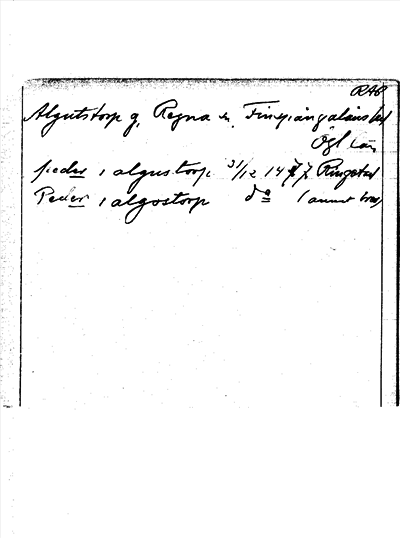 RAP
Algutstorp g, Regna sn, Finspångaläns hd
Ögl län
peder i algustorp 31/12 1477 Ringstad
Peder i algostorp do (annat brev)